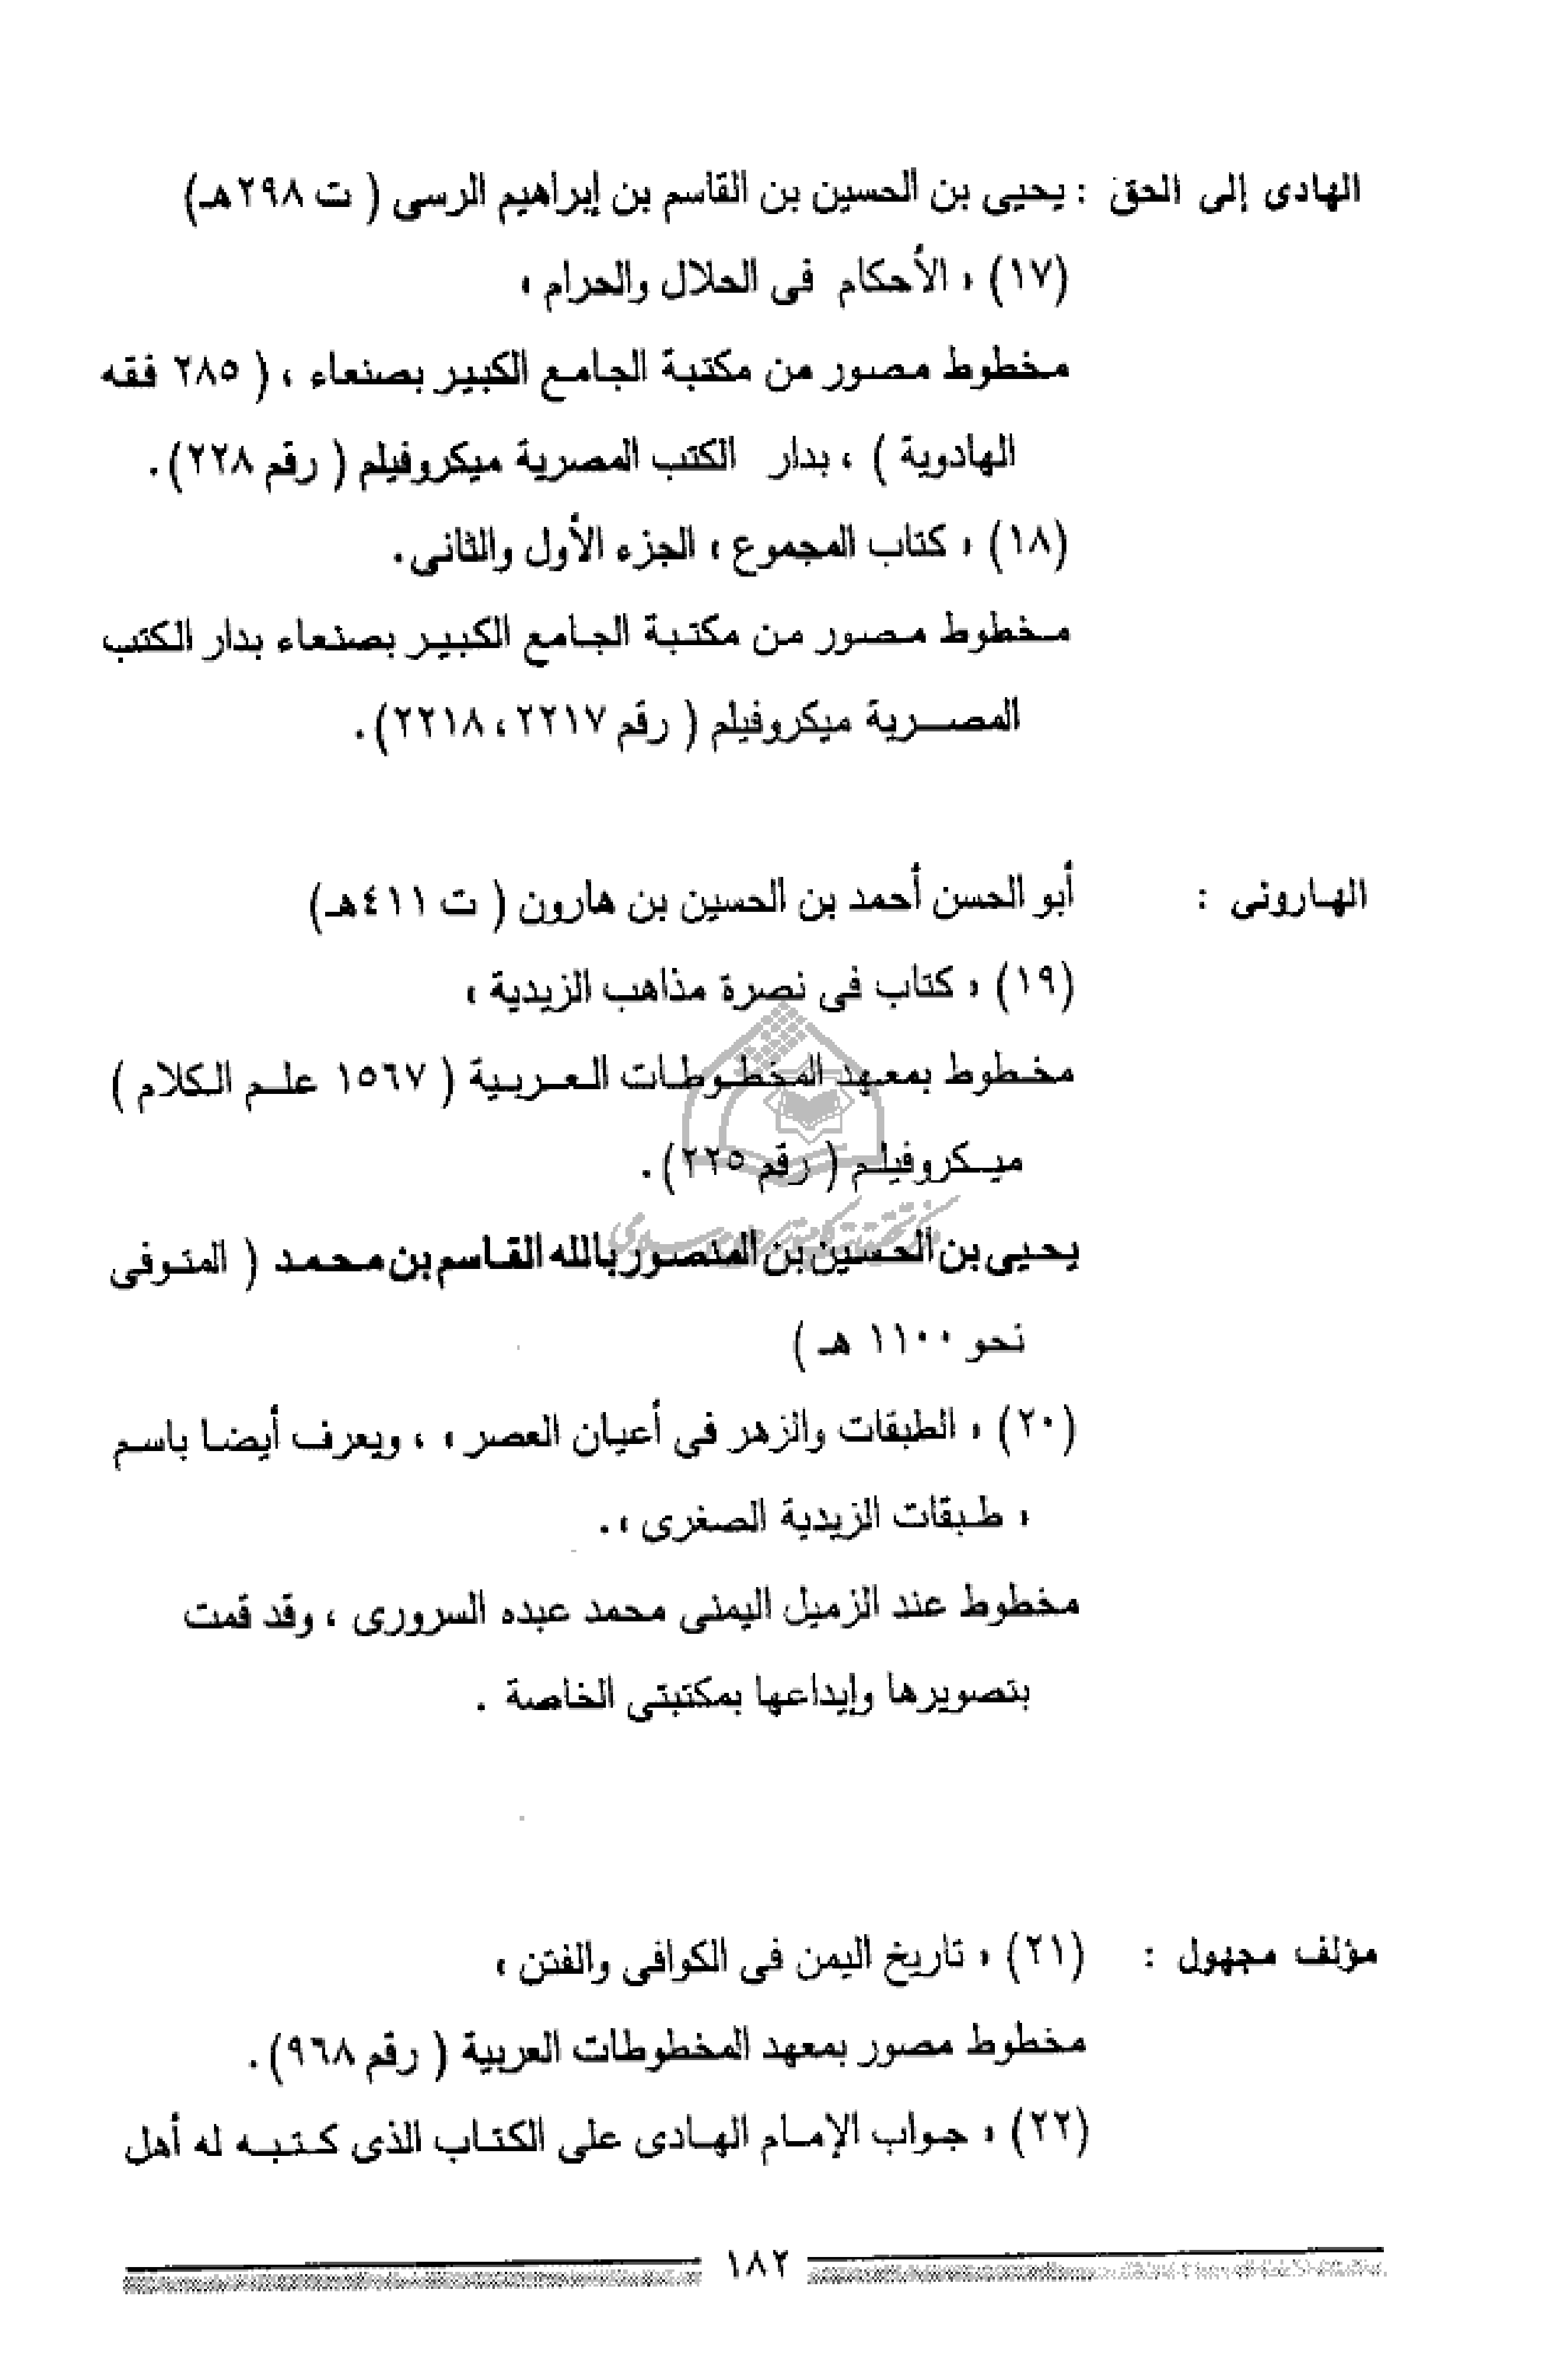 الهادى إلى الحق : يحيى بن الحسين بن القاسم بن إبراهيم الرسى ( ت ٢٩٨هـ)
(١٧) « الأحكام فى الحلال والحرام »
مخطوط مصور من مكتبة الجامع الكبير بصنعاء ، ( ٢٨٥ فقه
الهادوية ) ، بدار الكتب المصرية ميكروفيلم ( رقم ٢٢٨).
(١٨) « كتاب المجموع » الجزء الأول والثانى.
مخطوط مصور من مكتبة الجامع الكبير بصنعاء بدار الكتب
المصرية ميكروفيلم ( رقم ٢٢١٧ ، ٢٢١٨).
الهارونى : أبو الحسن أحمد بن الحسين بن هارون ( ت ٤١١هـ)
(١٩) « كتاب فى نصرة مذاهب الزيدية »
مخطوط بمعهد المخطوطات العربية ( ١٥٦٧ علم الكلام )
ميكروفيلم ( رقم ٢٢٥).
يحيى بن الحسين بن المنصور بالله القاسم بن محمد ( المتوفى
نحو ١١٠٠ هـ )
(٢٠) « الطبقات والزهر فى أعيان العصر » ، ويعرف أيضا باسم
« طبقات الزيدية الصغرى ».
مخطوط عند الزميل اليمنى محمد عبده السرورى ، وقد قمت
بتصويرها وإيداعها بمكتبتى الخاصة .
مؤلف مجهول : (٢١) « تاريخ اليمن فى الكوافى والفتن »
مخطوط مصور بمعهد المخطوطات العربية ( رقم ٩٦٨).
(٢٢) « جواب الإمام الهادى على الكتاب الذى كتبه له أهل
١٨٢